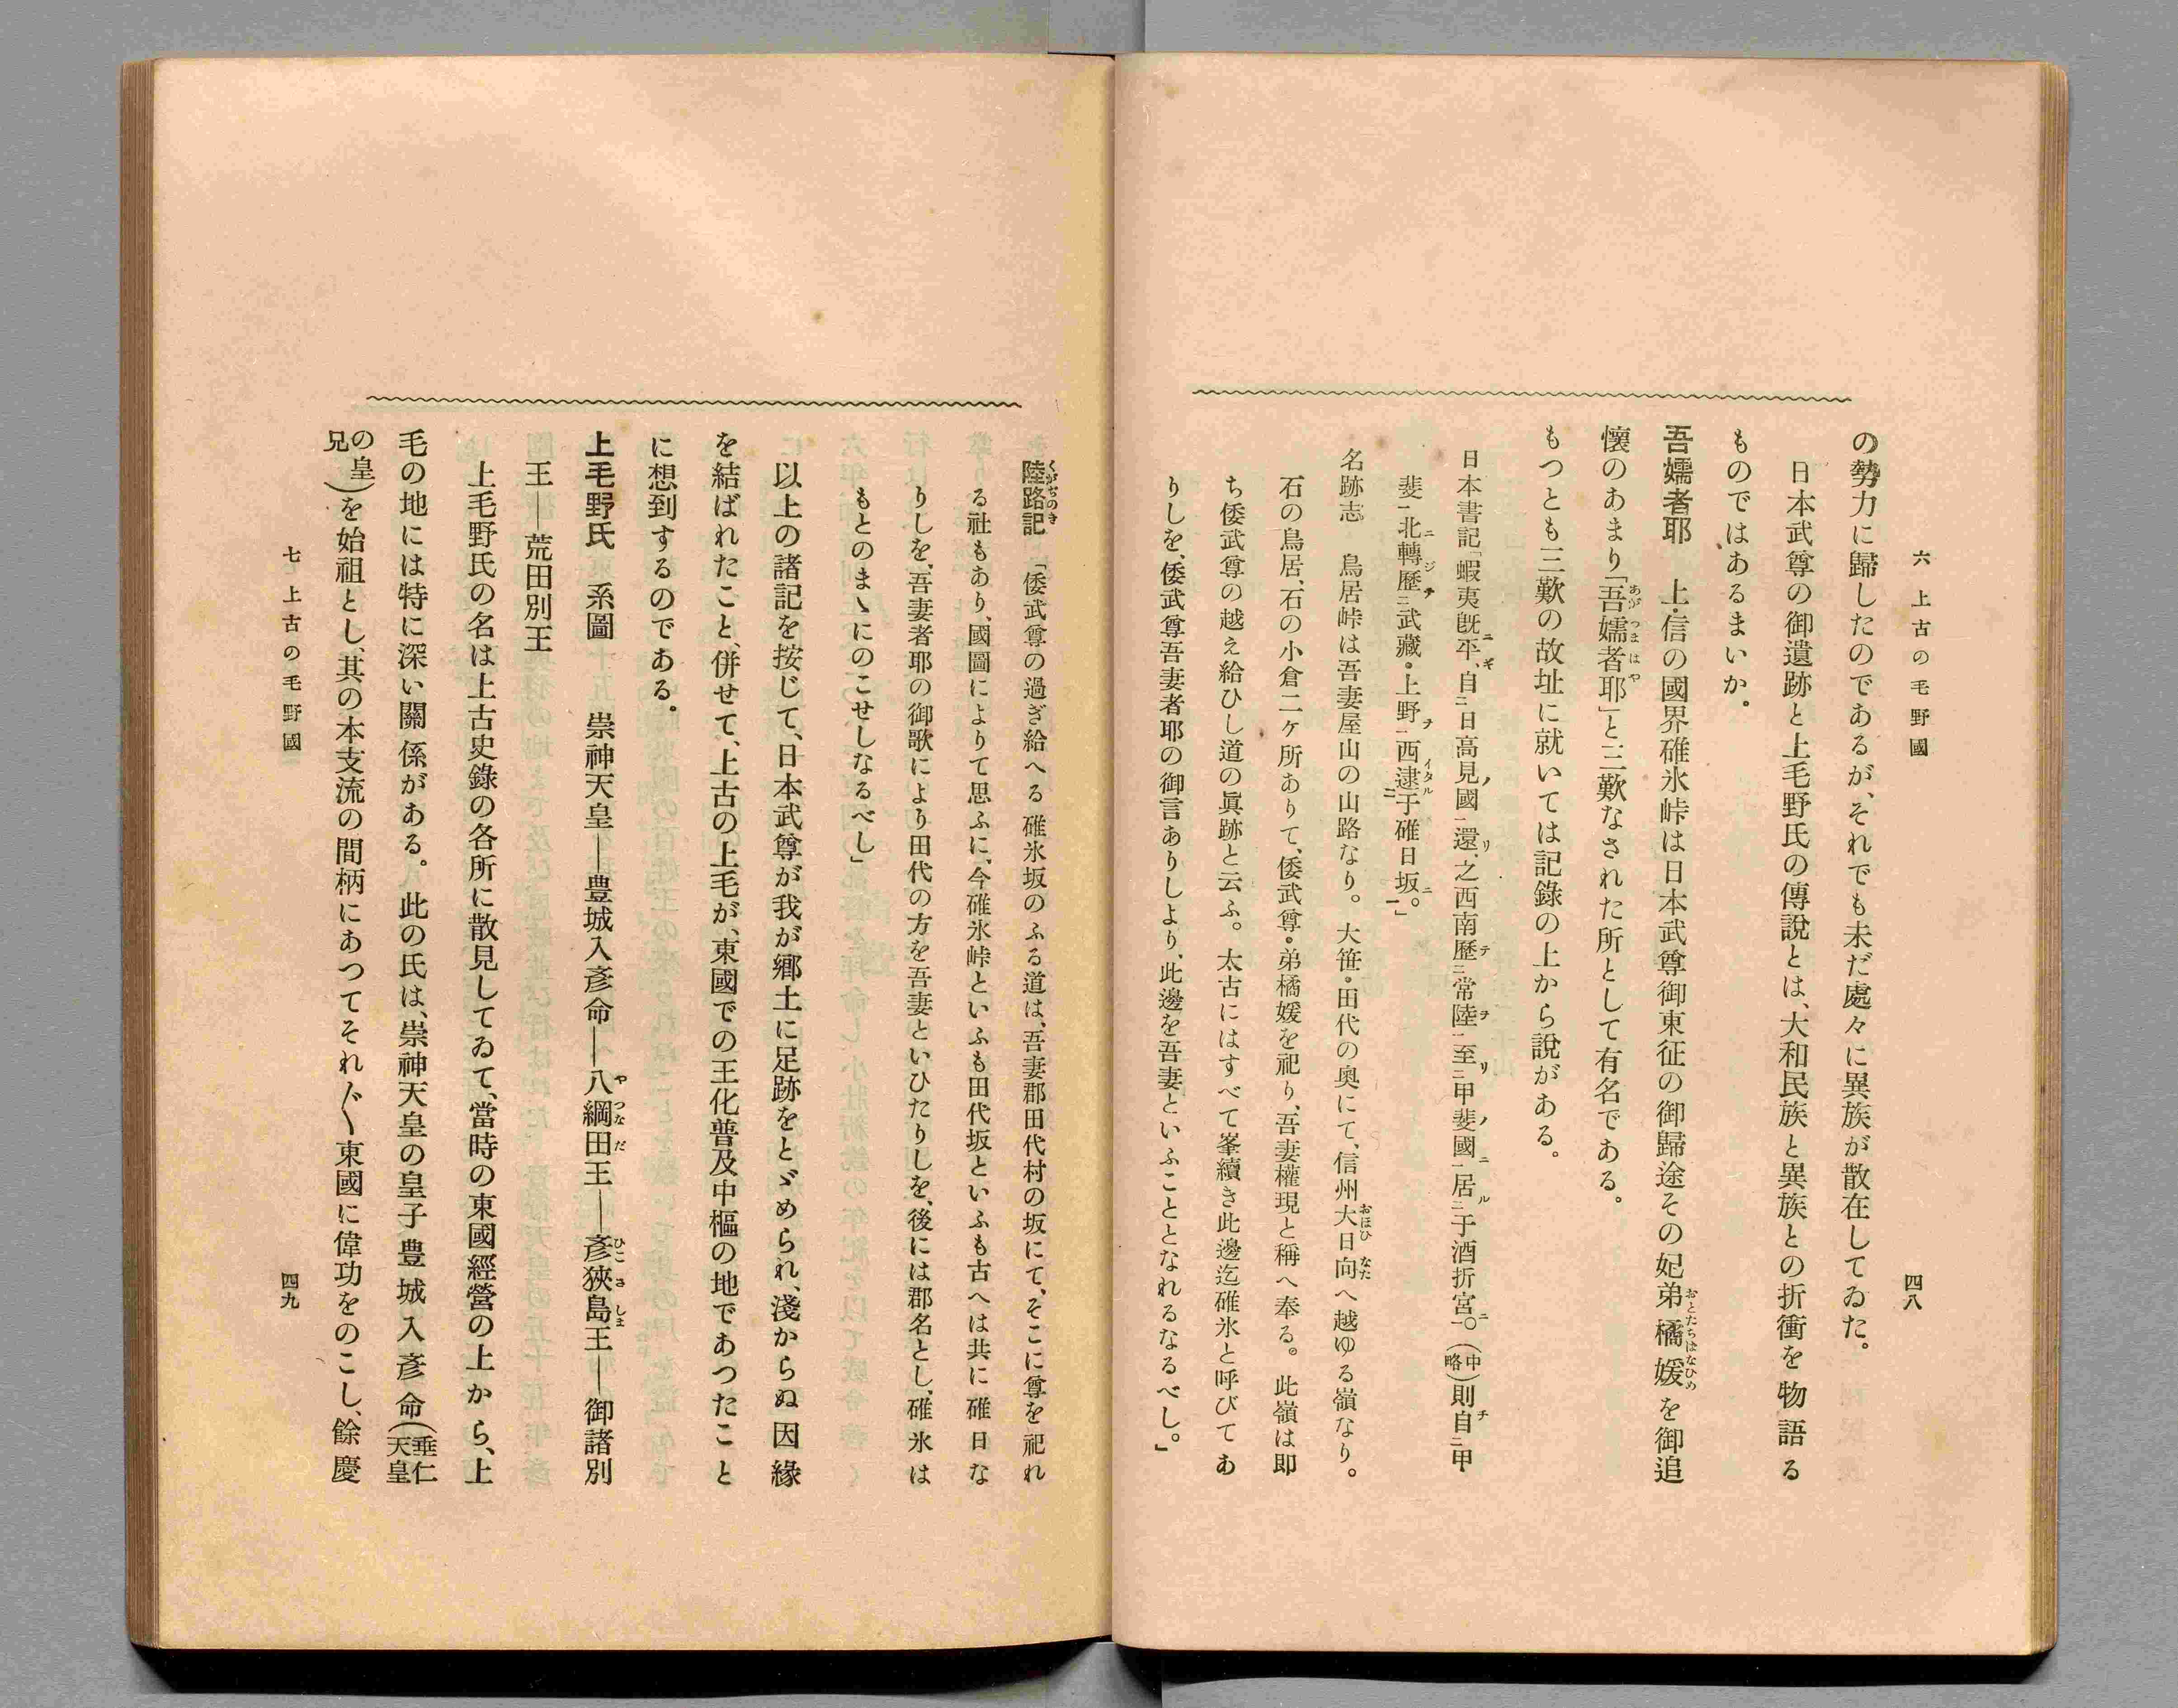 六 上古の毛野國
四八
の勢力に歸したのであるが、それでも未だ處々に異族が散在してゐた。
日本武尊の御遺跡と上毛野氏の傳說とは、大和民族と異族との折衝を物語る
ものではあるまいか。
吾嬬者耶 上・信の國界碓氷峠は日本武尊御東征の御歸途その妃弟橘媛を御追
懷のあまり「吾嬬者耶」と三歎なされた所として有名である。
もつとも三歎の故址に就いては記錄の上から說がある。
日本書記「蝦夷旣平、自日高見國還之西南歷常陸至甲斐國居于酒折宮。(中略)則自甲
斐北轉歷武藏・上野西逮于碓日坂。」
名跡志 鳥居峠は吾妻屋山の山路なり。大笹・田代の奧にて、信州大日向へ越ゆる嶺なり。
石の鳥居、石の小倉二ヶ所ありて、倭武尊・弟橘媛を祀り、吾妻權現と稱へ奉る。此嶺は卽
ち倭武尊の越え給ひし道の眞跡と云ふ。太古にはすべて峯續き此邊迄碓氷と呼びてあ
りしを、倭武尊吾妻者耶の御言ありしより、此邊を吾妻といふこととなれるなるべし。」
陸路記 「倭武尊の過ぎ給へる碓氷坂のふる道は、吾妻郡田代村の坂にて、そこに尊を祀れ
る社もあり、國圖によりて思ふに、今碓氷峠といふも田代坂といふも古へは共に碓日な
りしを、吾妻者耶の御歌により田代の方を吾妻といひたりしを、後には郡名とし、碓氷は
もとのまゝにのこせしなるべし」
以上の諸記を按じて、日本武尊が我が鄕土に足跡をとゞめられ、淺からぬ因緣
を結ばれたこと、併せて、上古の上毛が、東國での王化普及中樞の地であつたこと
に想到するのである。
上毛野氏 系圖 崇神天皇―豊城入彥命―八綱田王―彥狹島王―御諸別
王―荒田別王
上毛野氏の名は上古史錄の各所に散見してゐて、當時の東國經營の上から、上
毛の地には特に深い關係がある。此の氏は、崇神天皇の皇子豊城入彥命(垂仁天皇
の皇兄)を始祖とし、其の本支流の間柄にあつてそれ〲東國に偉功をのこし、餘慶
七 上古の毛野國
四九